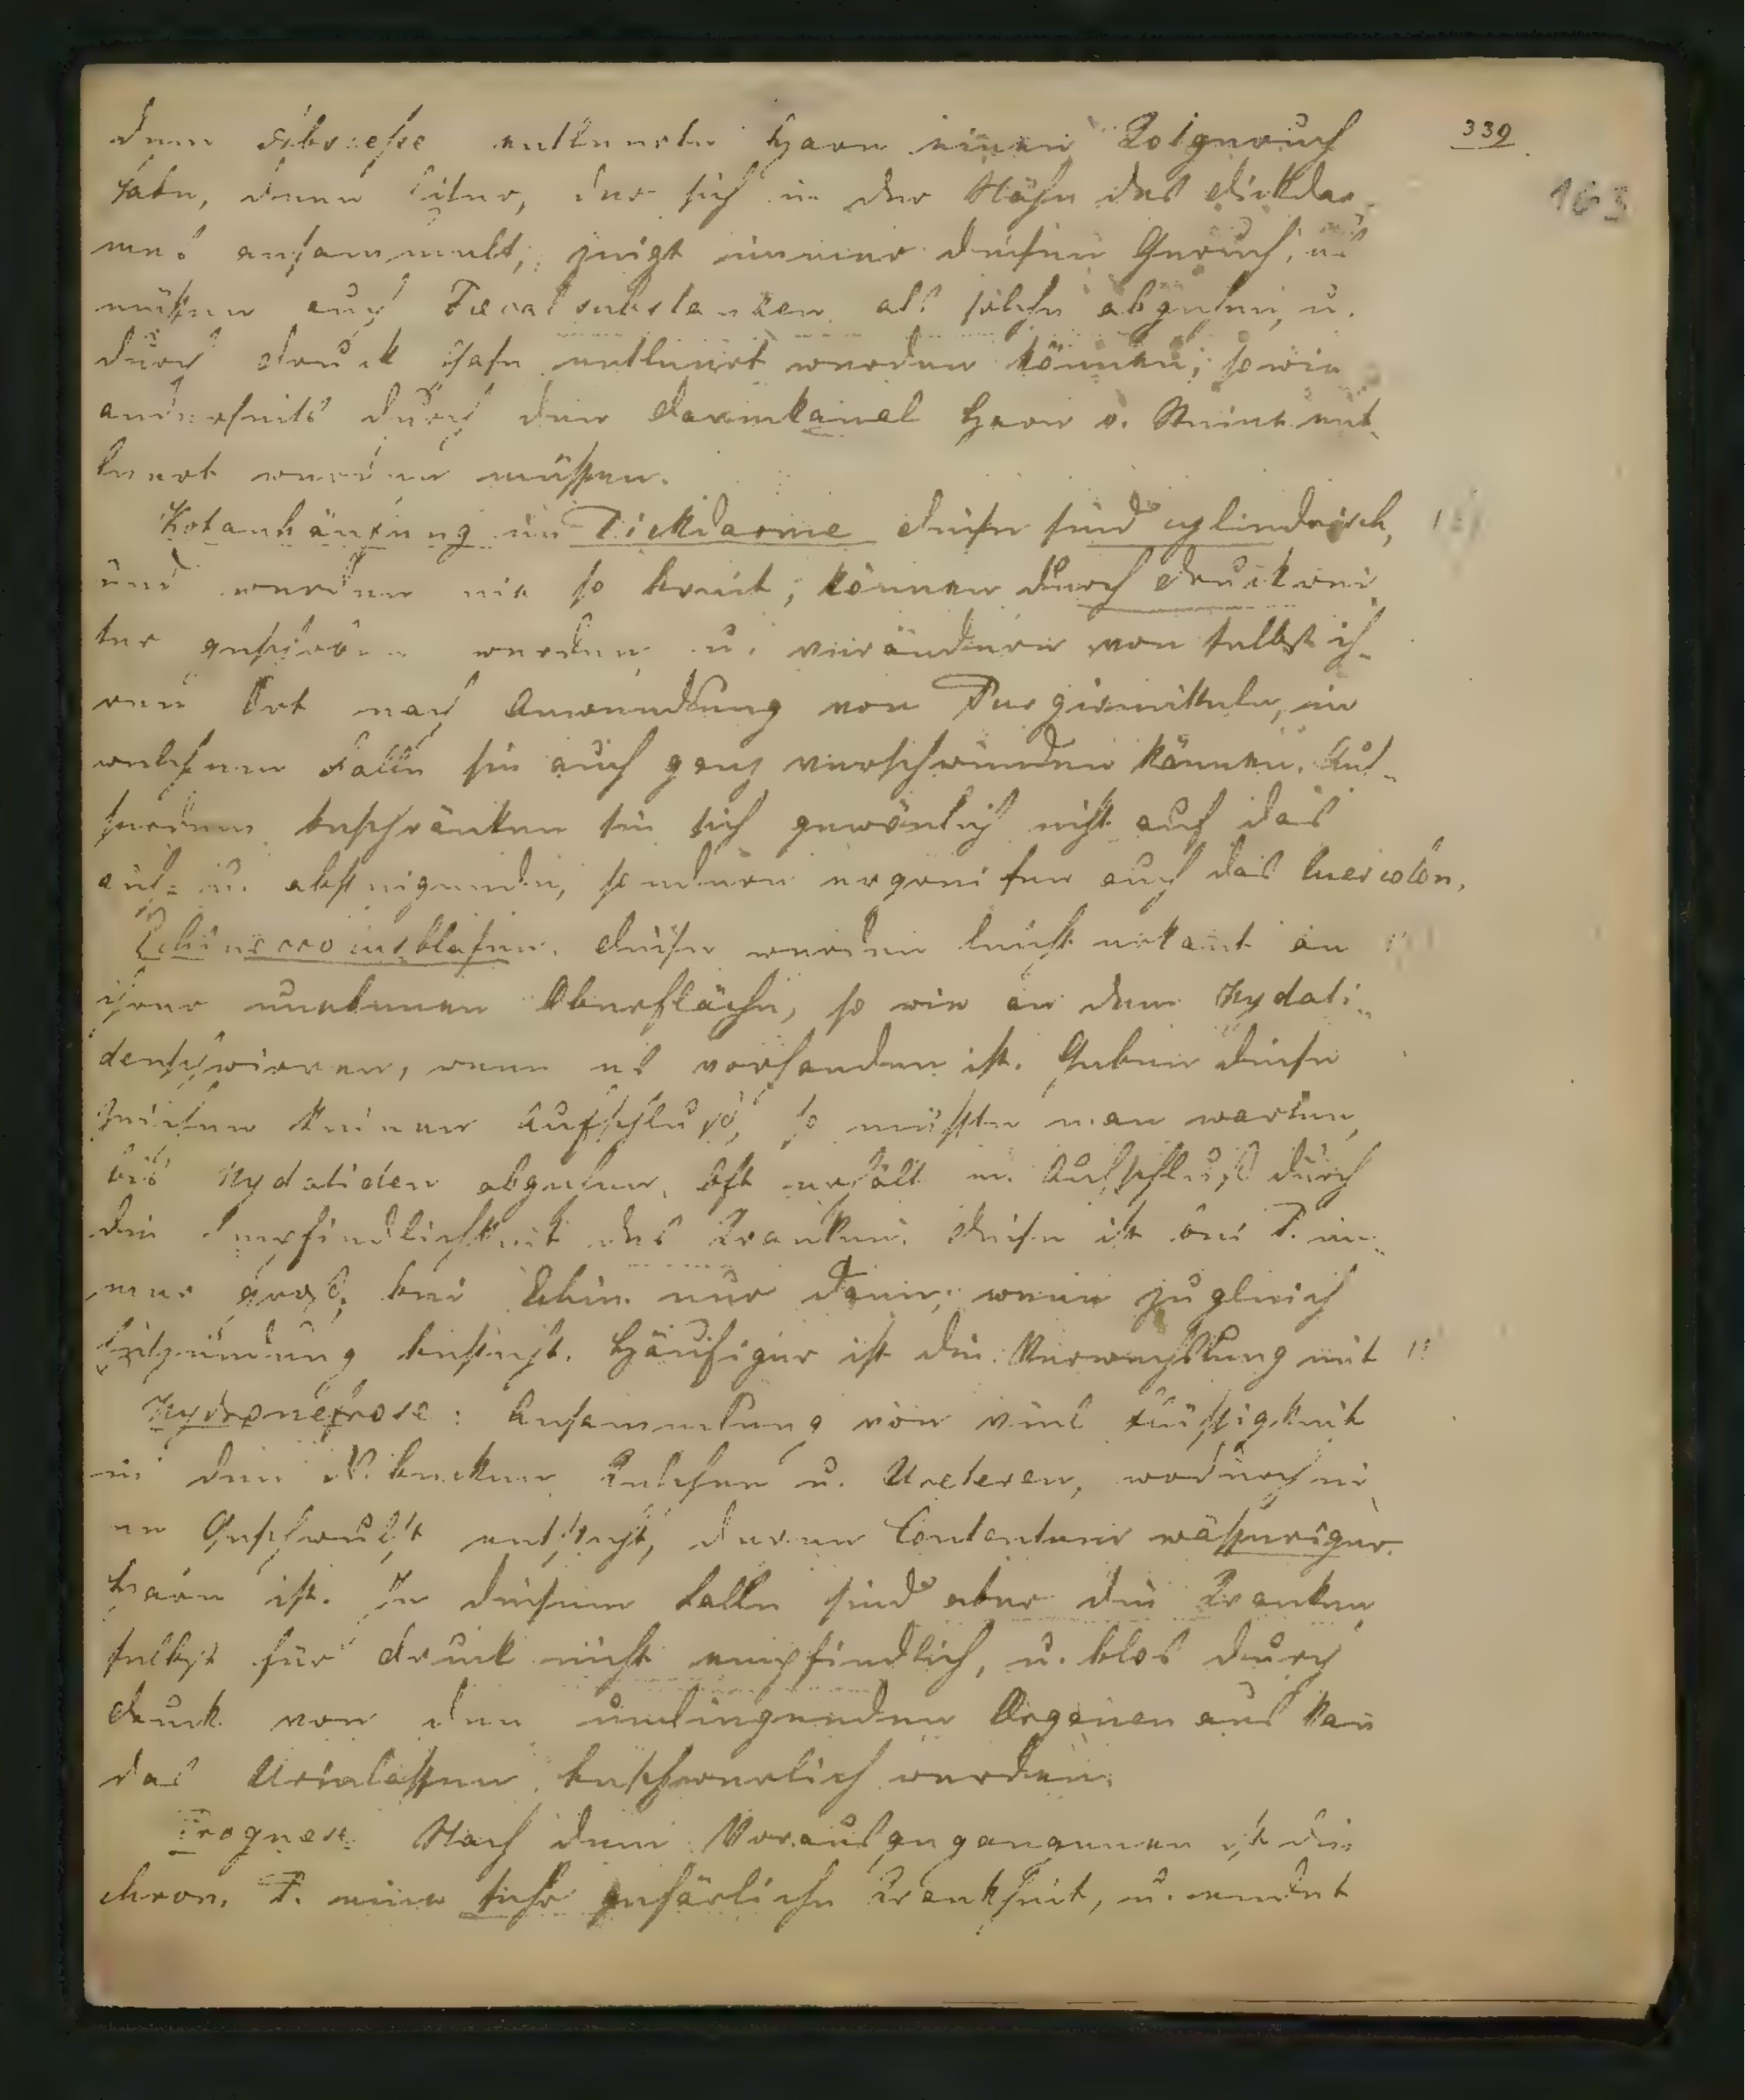 339
163
dem Abscesse entleerte Harn einen Kotgeruch
habe, denn Eiter, der sich in der Nähe des Dickdar-
mes ansammelt, zeigt immer diesen Geruch, es
müßen auch Fecalsubstanzen als solche abgehen, u.
durch Druck entleert werden können; so wie
anderseits durch den Darmkanal Harn o. Steine ent-
leert werden müßen.
Kotanhäufung im Dickdarme diese sind cylindrisch,
und werden nie so breit; können durch Druck wei-
ter geschoben werden u. verändern von selbst ih-
ren Ort nach Anwendung von Purgirmitteln, in
welchem Falle sie auch ganz verschwinden können. Aus-
serdem beschränken sie sich gewönlich nicht auf das
auf= u. absteigende, sondern ergreifen auch das Quercolon.
Echinococcusblasen. diese werden leicht erkant an
ihrer unebenen Oberfläche, so wie an dem Hydati-
denschwirren, wenn es vorhanden ist. Geben diese
Zeichen keinen Aufschluß, so müßte man warten,
bis Hydatiden abgehen. Oft erhält m. Aufschluß durch
die Empfindlichkeit des Kranken. diese ist bei P. im-
mer groß, bei Echin. nur dann, wenn zugleich
Entzündung besteht. Häufiger ist die Verwechslung mit
Hydronefrose: Ansammlung von viel Flüssigkeit
in den N.becken Kelchen u. Ureteren, wodurch ei-
ne Geschwulst entsteht, deren Contentum wässeriger
Harn ist. In diesem Falle sind aber die Kranken
selbst für Druck nicht empfindlich, u. blos durch
Druck von den umliegenden Organen aus kan
das Urinlassen beschwerlich werden.
Prognose. Nach dem Vorausgegangenen ist die
chron. P. eine sehr gefärliche Krankheit, u. endet